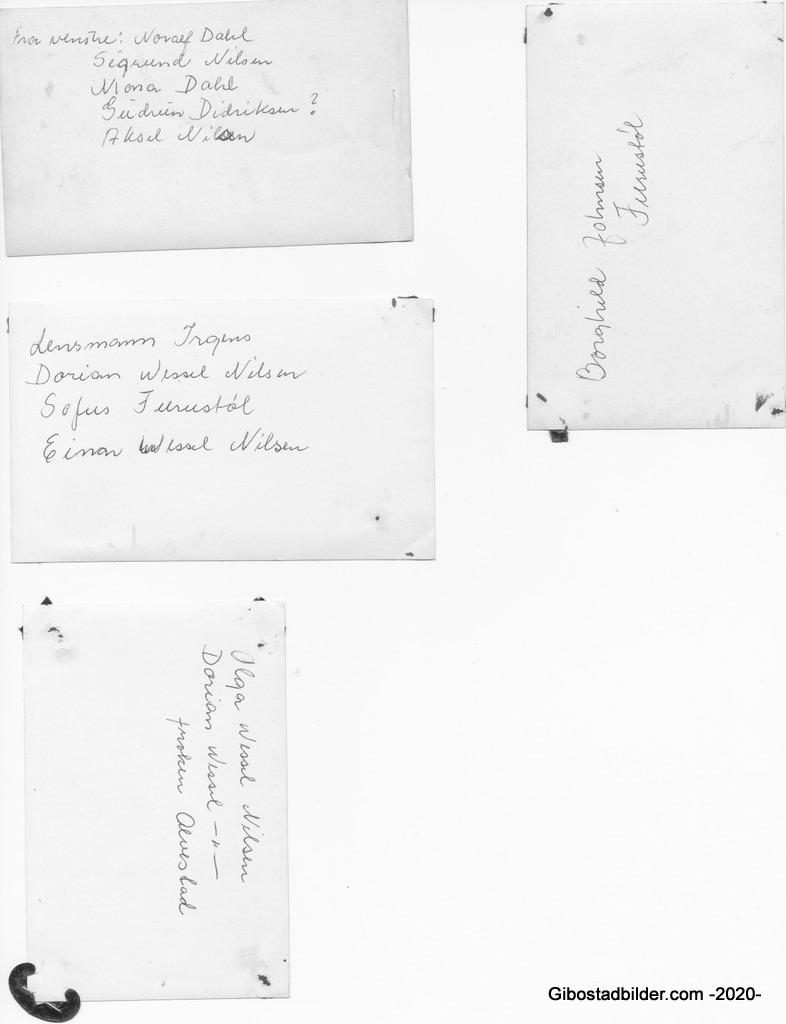 Fra venstre: Noralf Dahl
Sigrund Nilsen
Mona Dahl
Gudrun Didriksen?
Aksel Nilsen
Borghild Johnsen
Furustøl
Lensmann Irgens
Dorian Wessel Nilsen
Sofus Furustøl
Einar Wessel Nilsen
Olga Wessel Nilsen
Dorian Wessel —"—
frøken Alvestad
Gibostadbilder.com -2020-